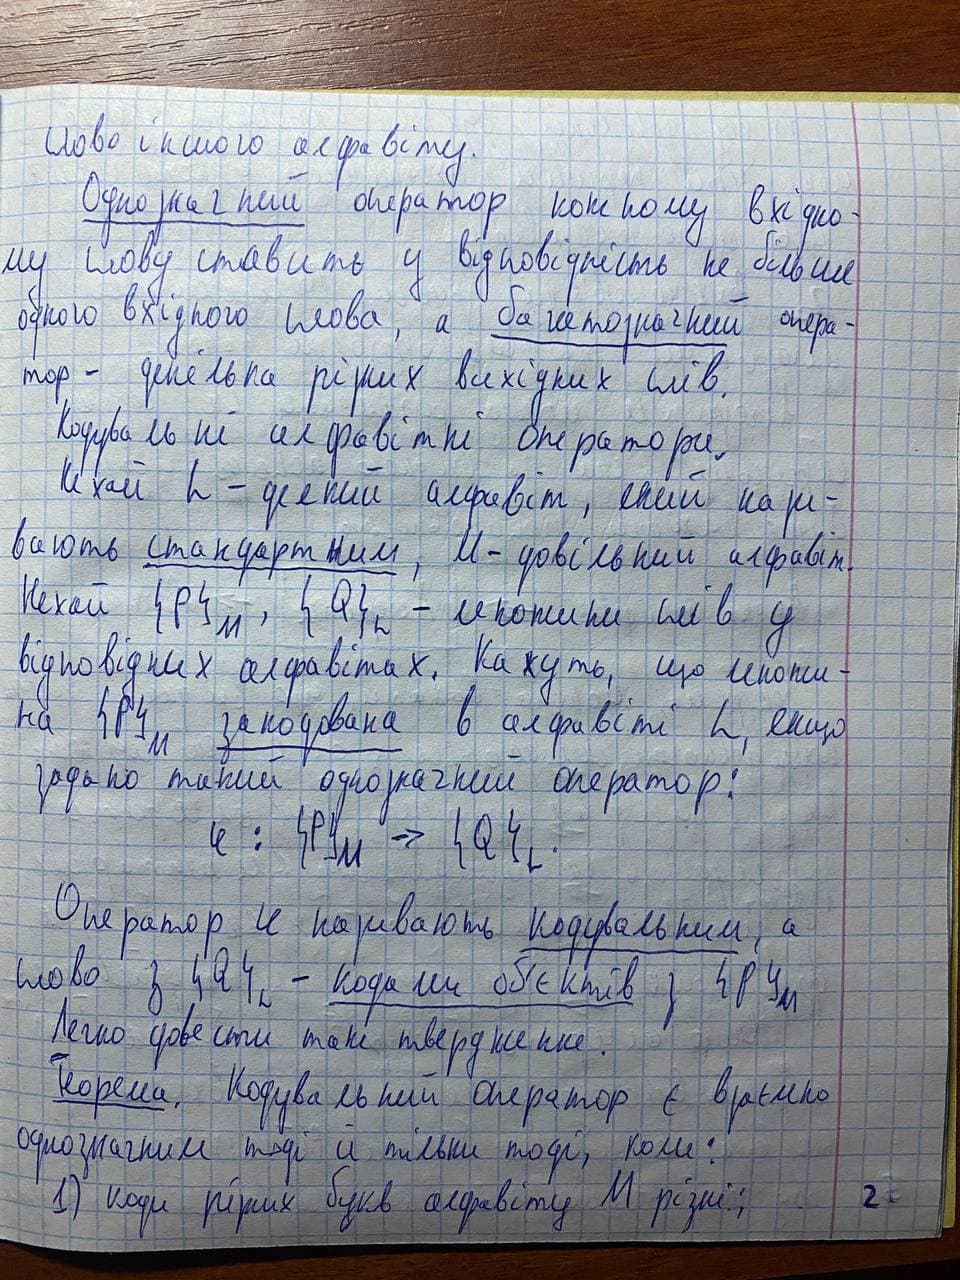 слово іншого алфавіту.
Однозначний оператор кожному вхідно-
му слову ставить у відповідність не більше
одного вхідного слова, а багатозначний опера-
тор - декілька різних вихідних слів.
Кодувальні алфавітні оператори.
Нехай L - деякий алфавіт, який нази-
вають стандартним, M - довільний алфавіт.
Нехай {P}M, {Q}L - множини слів у
відповідних алфавітах. Кажуть, що множи-
на {P}M закодована в алфавіті L, якщо
задано такий однозначний оператор:
φ : {P}M → {Q}L.
Оператор φ називають кодувальним, а
слово з {Q}L - кодами об'єктів з {P}M
Легко довести таке твердження.
Теорема. Кодувальний оператор є взаємно
однозначним тоді й тільки тоді, коли:
1) коди різних букв алфавіту M різні;
2